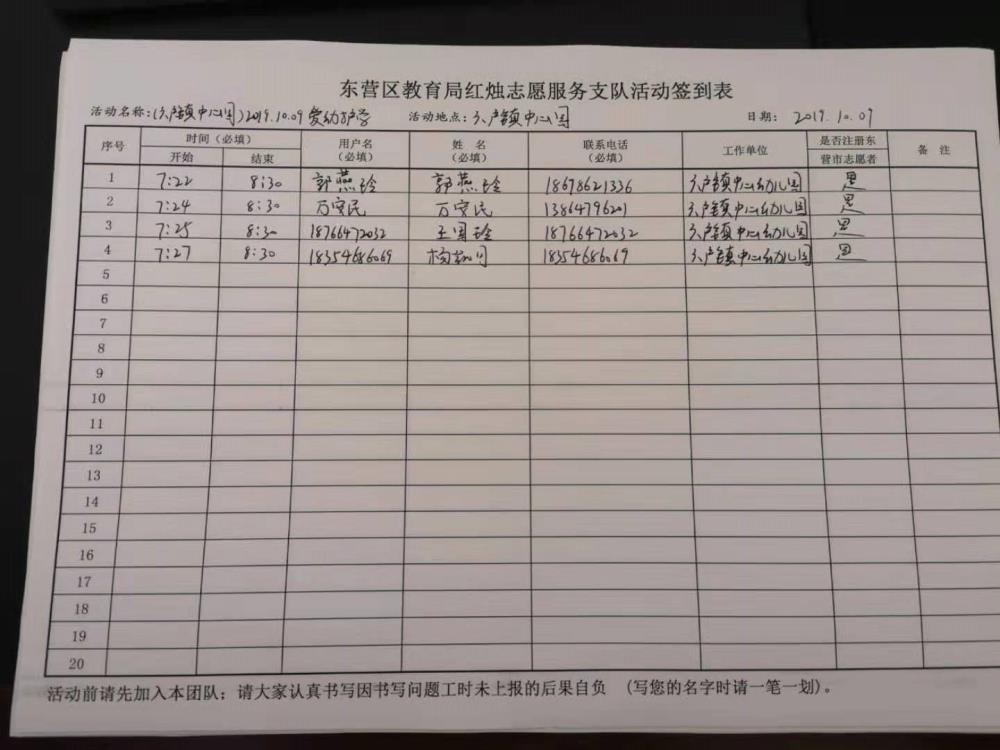 东营区教育局红烛志愿服务支队活动签到表
活动名称:(六户镇中心园)2019.10.09爱幼护学 活动地点:六户镇中心园 日期: 2019.10.09
序号 时间(必填) 用户名 姓名 联系电话 工作单位 是否注册东 备注
开始 结束 (必填) (必填) (必填) 营市志愿者
1 7:22 8:30 郭燕玲 郭燕玲 18678621336 六户镇中心幼儿园 是
2 7:24 8:30 万安民 万安民 13864796201 六户镇中心幼儿园 是
3 7:25 8:30 18766472032 王国玲 18766472032 六户镇中心幼儿园 是
4 7:27 8:30 18354686069 18354686069 六户镇中心幼儿园 是
5
6
7
8
9
10
11
12
13
14
15
16
17
18
19
20
活动前请先加入本团队;请大家认真书写因书写问题工时未上报的后果自负 (写您的名字时请一笔一划)。